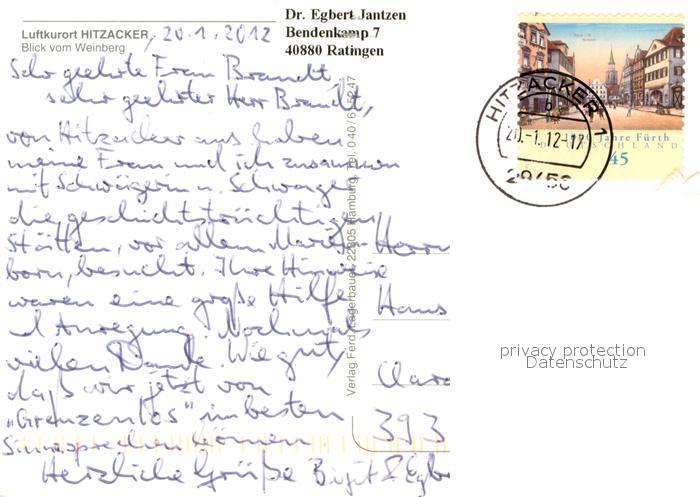 Luftkurort HITZACKER, 20.1.2012
Blick vom Weinberg
Dr. Egbert Jantzen
Bendenkamp 7
40880 Ratingen
Sehr geehrte Frau Brandt,
sehr geehrter Herr Brandt,
von Hitzacker aus haben
meine Frau und ich zusammen
mit Schwägerin u. Schwager
die geschichtsträchtigen
Stätten, vor allem Marien-
born, besucht. Ihre Hinweise
waren eine große Hilfe
u Anregung. Nochmals
vielen Dank. Wie gut,
daß wir jetzt von
„Grenzenlos" im besten
Sinne sprechen können
Herzliche Grüße Birgit & Egb
Verlag Ferd. Lagerbauer, 22905 Hamburg, Tel. 040/
HITZACKER 1
b
20.-1.12-17
29456
1000 Jahre Fürth
DEUTSCHLAND
45
Herrn
Hans
Clara
393
privacy protection
Datenschutz